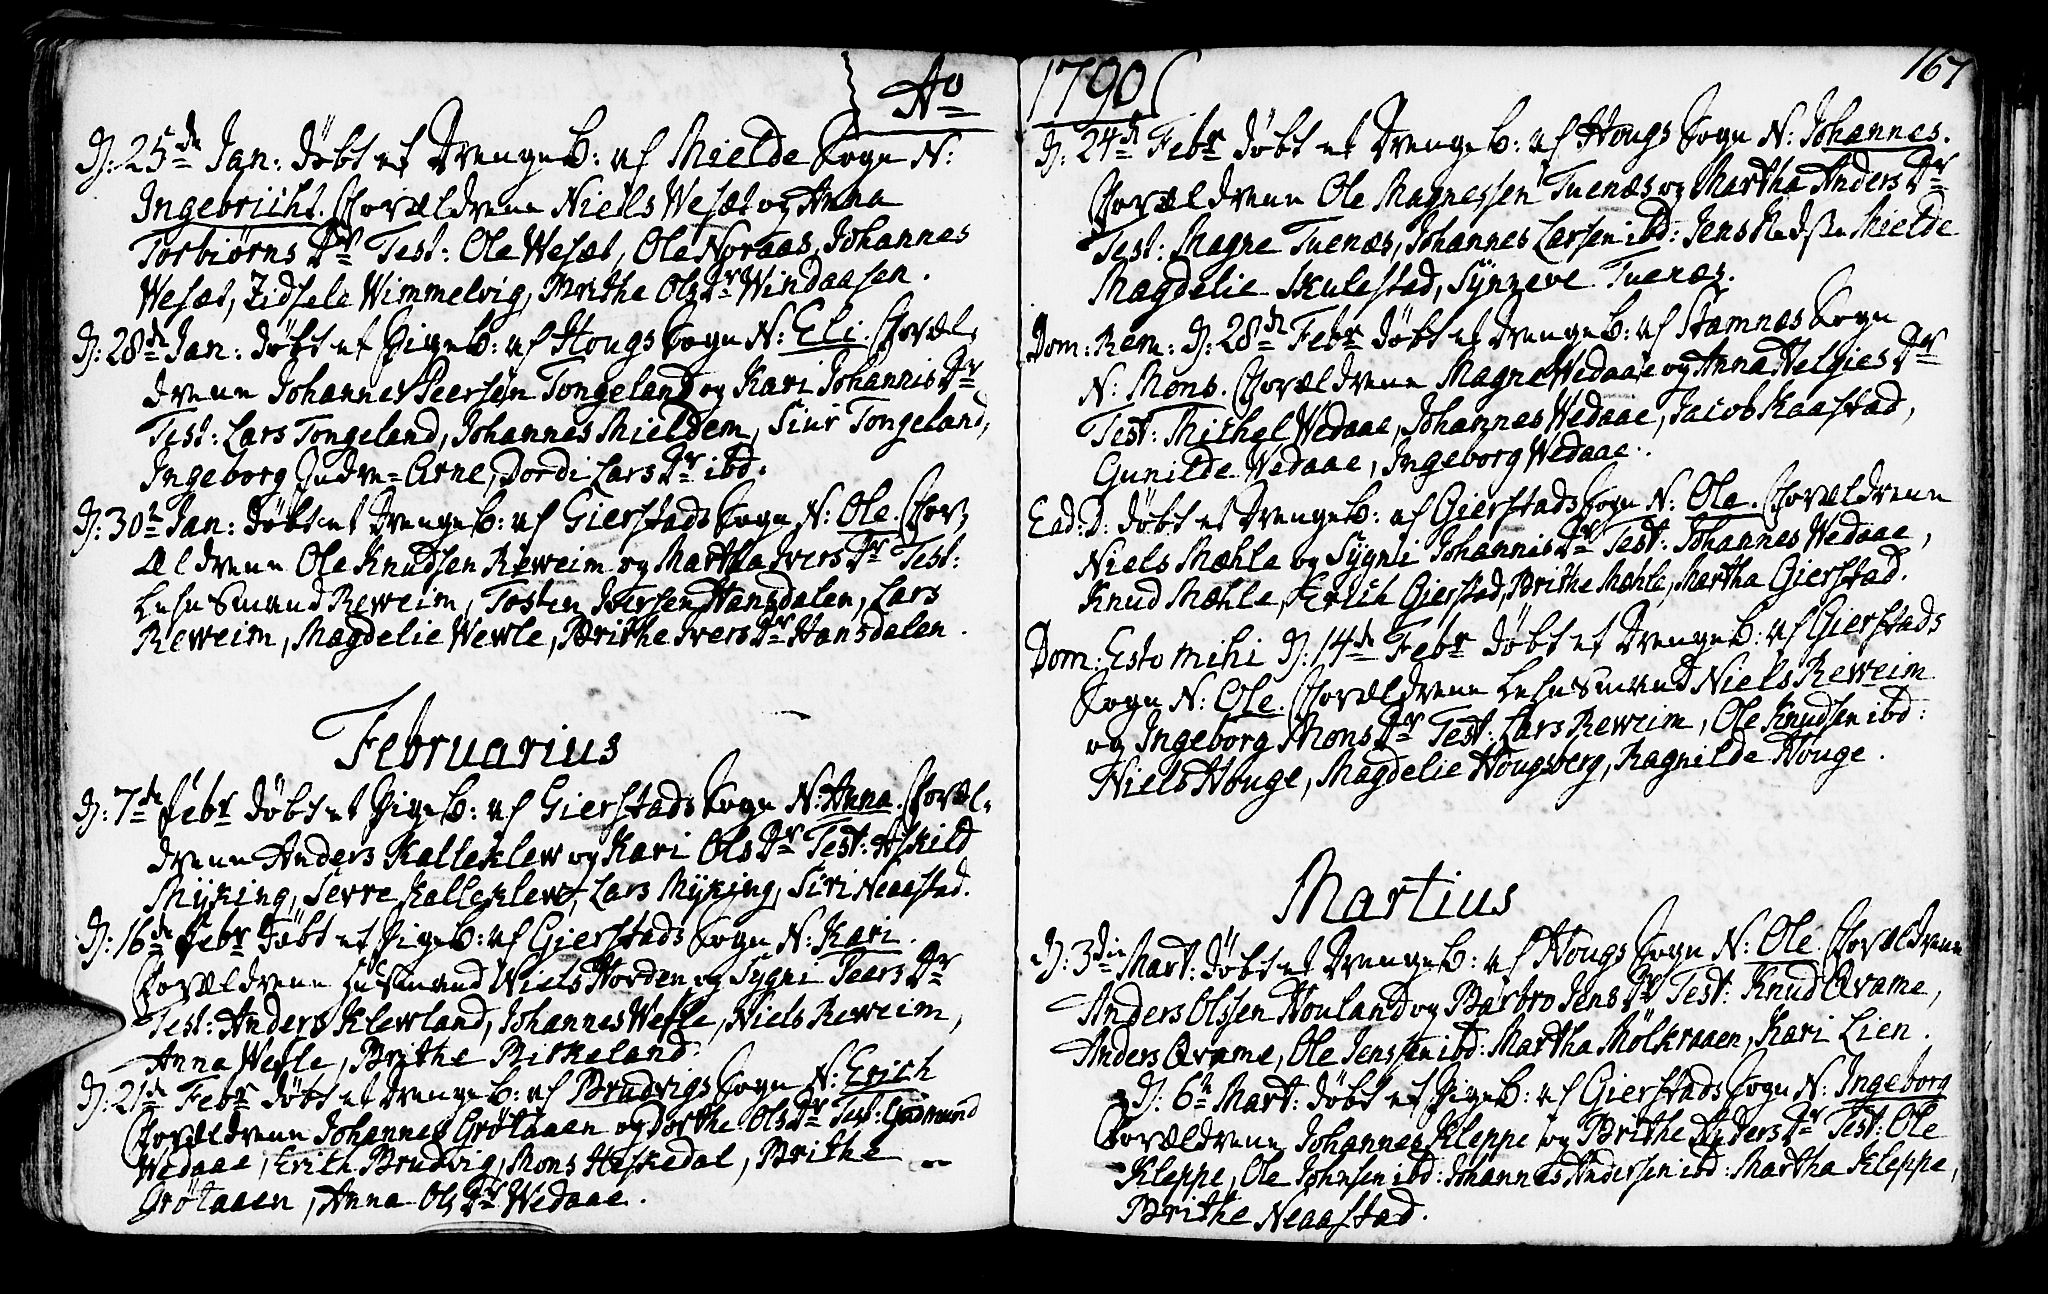 Ao
D: 25de Jan: døbt et Drenge B: af Mielde Sogn N:
Ingebricht. Forældrene Niels Wesæt og Anna
Torbiørns Dr Test: Ole Wesæt, Ole Noraas, Johannes
Wesæt, Zidsele Wimmelvig, Brithe Ols Dr Windaasen.
D: 28de Jan: døbt et Pige B: af Hougs Sogn N: Eli. Foræl-
drene Johannes Peersøn Tongeland og Kari Johannis Dr
Test: Lars Tongeland, Johannes Mieldem, Siur Tongeland,
Ingeborg Indre-Arne, Dordi Lars Dr ibd.
D: 30te Jan: døbt et Drenge B: af Gierstads Sogn N: Ole. For-
ældrene Ole Knudsen Reweim og Martha Ivers Dr Test:
Lehnsmand Reweim, Tosten Iversen Hansdalen, Lars
Reweim, Magdelie Wewle, Brithe Ivers Dr Hansdalen.
Februarius
D: 7de Febr døbt et Pige B: af Gierstads Sogn N: Anna. Foræl-
drene Anders Kalleklew og Kari Ols Dr Test: Askild
Myking, Serre Kalleklew, Lars Myking, Siri Neaastad.
D: 16de Febr døbt et Pige B: af Gierstads Sogn N: Kari.
Forældrene Huusmand Niels Horden og Sygni Peers Dr
Test: Anders Klewland, Johannes Wefle, Niels Reweim,
Anna Wefle, Brithe Birkeland.
D: 21de Febr døbt et Drenge B: af Brudvigs Sogn N: Erich
Forældrene Johannes Grøtaaen og Dorthe Ols Dr Test: Gudmund
Wedaae, Erich Brudvig, Mons Heskedal, Brithe
Grøtaaen, Anna Ols Dr Wedaae.
1790
167
D: 24de Febr døbt et Drenge B: af Hougs Sogn N: Johannes.
Forældrene Ole Magnessen Tuenæs og Martha Anders Dr
Test: Magne Tuenæs, Johannes Larsen ibd: Jens Mielde
Magdelie Skulestad, Synneve Tuenæs.
Dom: Rem: D: 28de Febr døbt et Drenge B: af Stamnæs Sogn
N: Mons. Forældrene Magne Wedaae og Anna Helgies Dr
Test: Michel Wedaae, Johannes Wedaae, Jacob Kaastad,
Gunilde Wedaae, Ingeborg Wedaae.
Ead: D: døbt et Drenge B: af Gierstads Sogn N: Ole. Forældrene
Niels Mæhle og Sygni Johannis Dr Test: Johannes Wedaae,
Knud Mæhle, Erich Gierstad, Brithe Mæhle, Martha Gierstad.
Dom: Esto mihi D: 14de Febr døbt et Drenge B: af Gierstads
Sogn N: Ole. Forældrene Lehnsmand Niels Reweim
og Ingeborg Mons Dr Test: Lars Reweim, Ole Knudsen ibd:
Niels Houge, Magdelie Hougsberg, Ragnilde Houge.
Martius
D: 3die Mart: døbt et Drenge B: af Hougs Sogn N: Ole. Forældrene
Anders Olssen Houland og Barbro Jens Dr Test: Knud Qvame,
Anders Qvame, Ole Jenssen ibd: Martha Mølkraaen, Kari Lien.
D: 6te Mart: døbt et Pige B: af Gierstads Sogn N: Ingeborg
Forældrene Johannes Kleppe og Brithe Anders Dr Test: Ole
Kleppe, Ole Johnsen ibd: Johannes Andersen ibd: Martha Kleppe,
Brithe Neaastad.